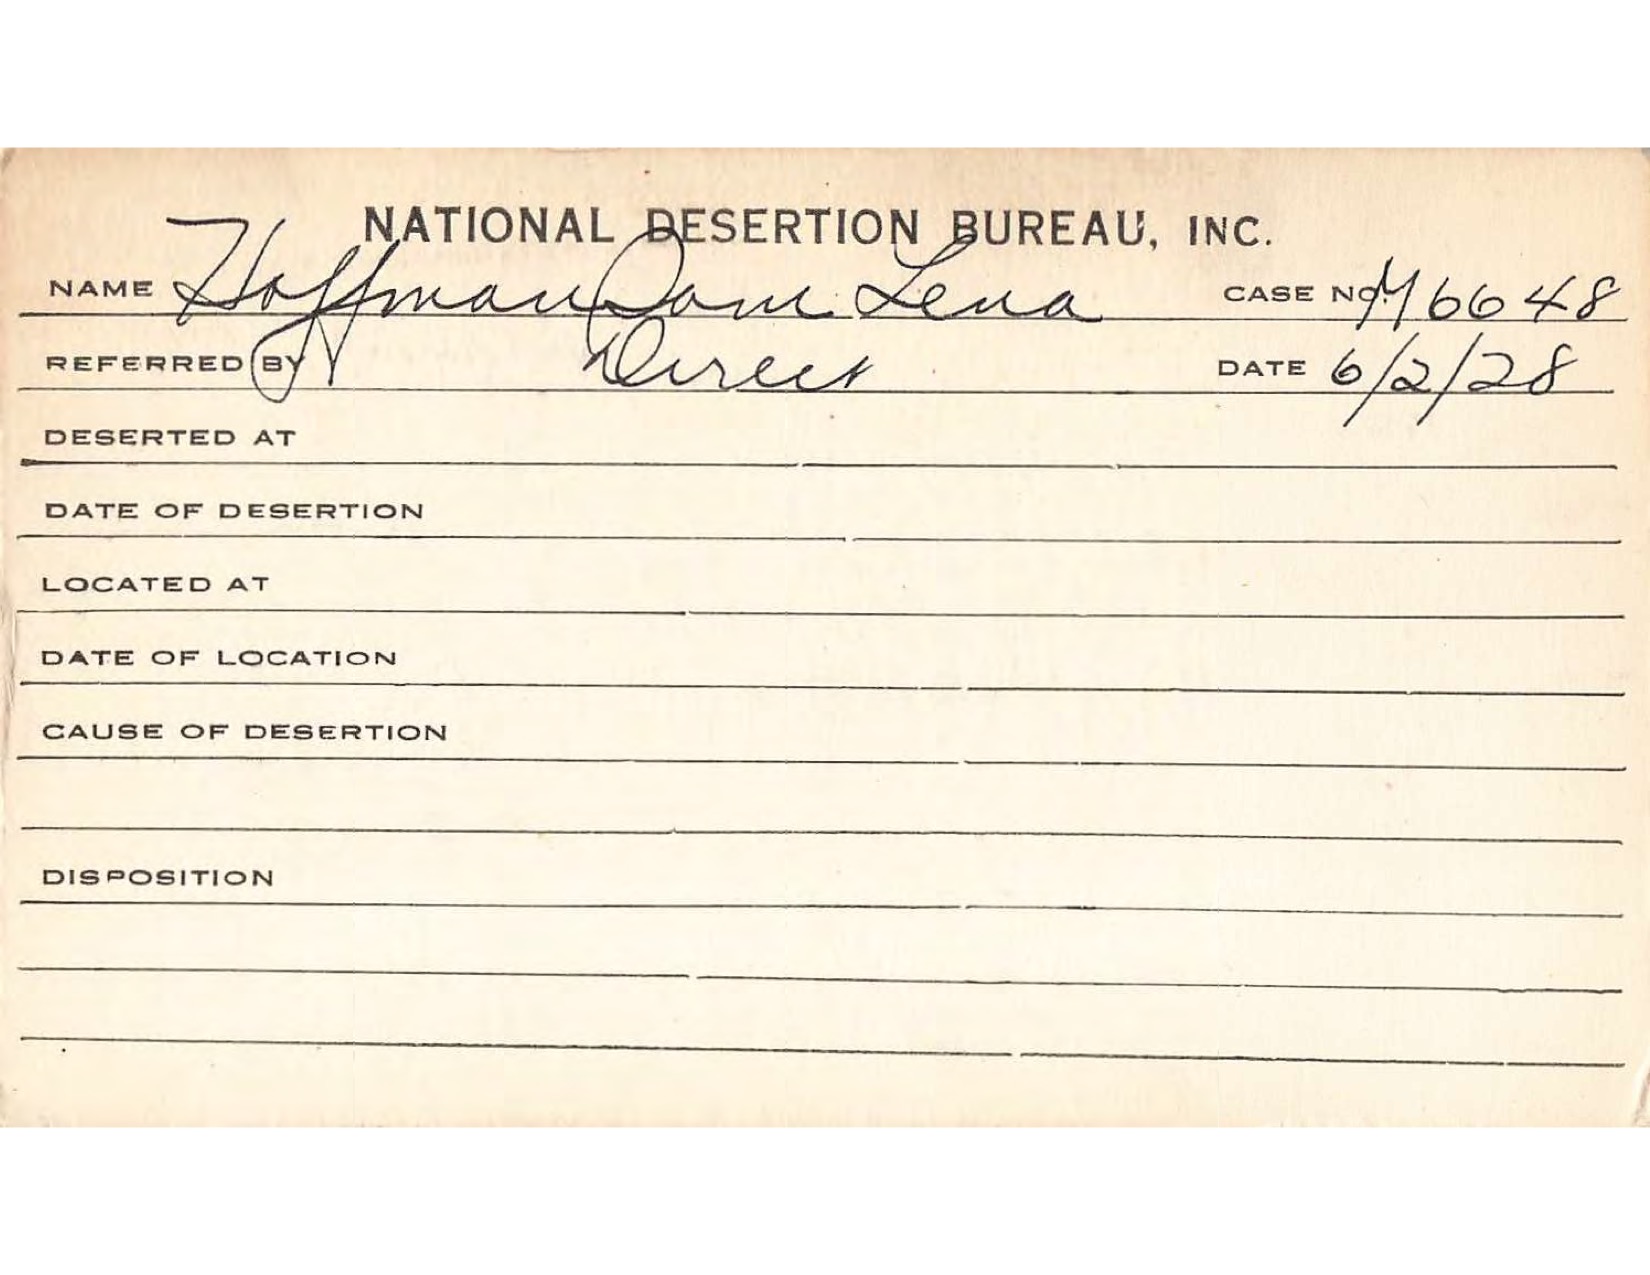 NATIONAL DESERTION BUREAU, INC.
NAME Hoffman Sam: Lena CASE NO. M6648
REFERRED BY Direct DATE 6/2/28
DESERTED AT
DATE OF DESERTION
LOCATED AT
DATE OF LOCATION
CAUSE OF DESERTION
DISPOSITION